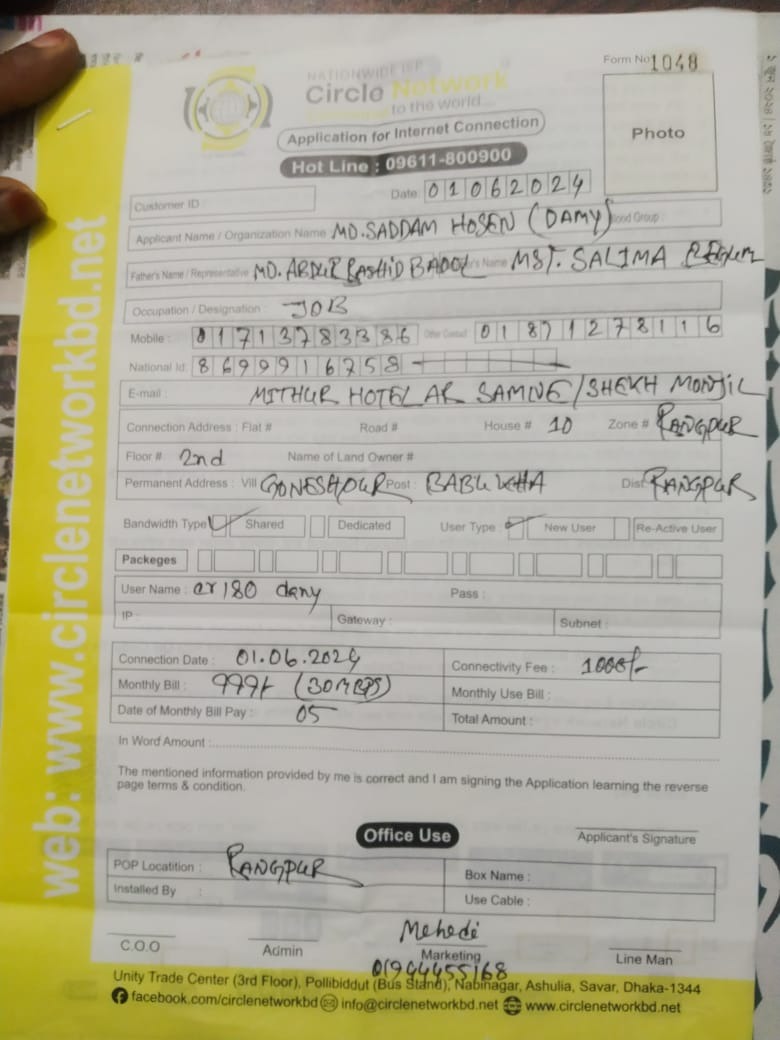 Form No 1048
NATIONWIDE ISP
Circle Network
to the world...
Application for Internet Connection
Hot Line : 09611-800900
Photo
Date 01062024
Customer ID :
Blood Group :
Applicant Name / Organization Name MD. SADDAM HOSEN (DAMY)
Father's Name / Representative MD. ABDUR RASHID BADOL Name MST. SALIMA BEGUM
Occupation / Designation : JOB
Mobile : 01713783386 Other Contact 01871278116
National Id: 8699916758
E-mail : MITHUR HOTEL AR SAMNE/SHEKH MONJIL
Connection Address : Flat # Road # House # 10 Zone # RANGPUR
Floor # 2nd Name of Land Owner #
Permanent Address : Vill GONESHPUR Post : BABUKHA Dist RANGPUR
Bandwidth Type Shared Dedicated User Type : New User Re-Active User
Packeges
User Name : cr180 dany Pass :
IP : Gateway : Subnet :
Connection Date : 01.06.2024 Connectivity Fee : 1000/-
Monthly Bill : 999/- (30MBPS) Monthly Use Bill :
Date of Monthly Bill Pay : 05 Total Amount :
In Word Amount :
The mentioned information provided by me is correct and I am signing the Application learning the reverse
page terms & condition.
Applicant's Signature
Office Use
POP Locatition : RANGPUR Box Name :
Installed By : Use Cable :
Mehedi
C.O.O Admin Marketing Line Man
01944455168
Unity Trade Center (3rd Floor), Pollibiddut (Bus Stand), Nabinagar, Ashulia, Savar, Dhaka-1344
facebook.com/circlenetworkbd info@circlenetworkbd.net www.circlenetworkbd.net
web: www.circlenetworkbd.net